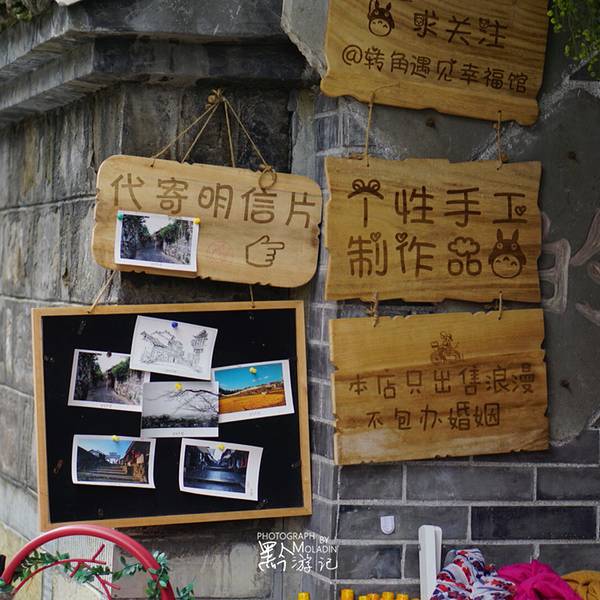 求关注
@转角遇见幸福馆
代寄明信片
个性手工
制作品
本店只出售浪漫
不包办婚姻
PHOTOGRAPH BY
MOLADIN
黑人游记